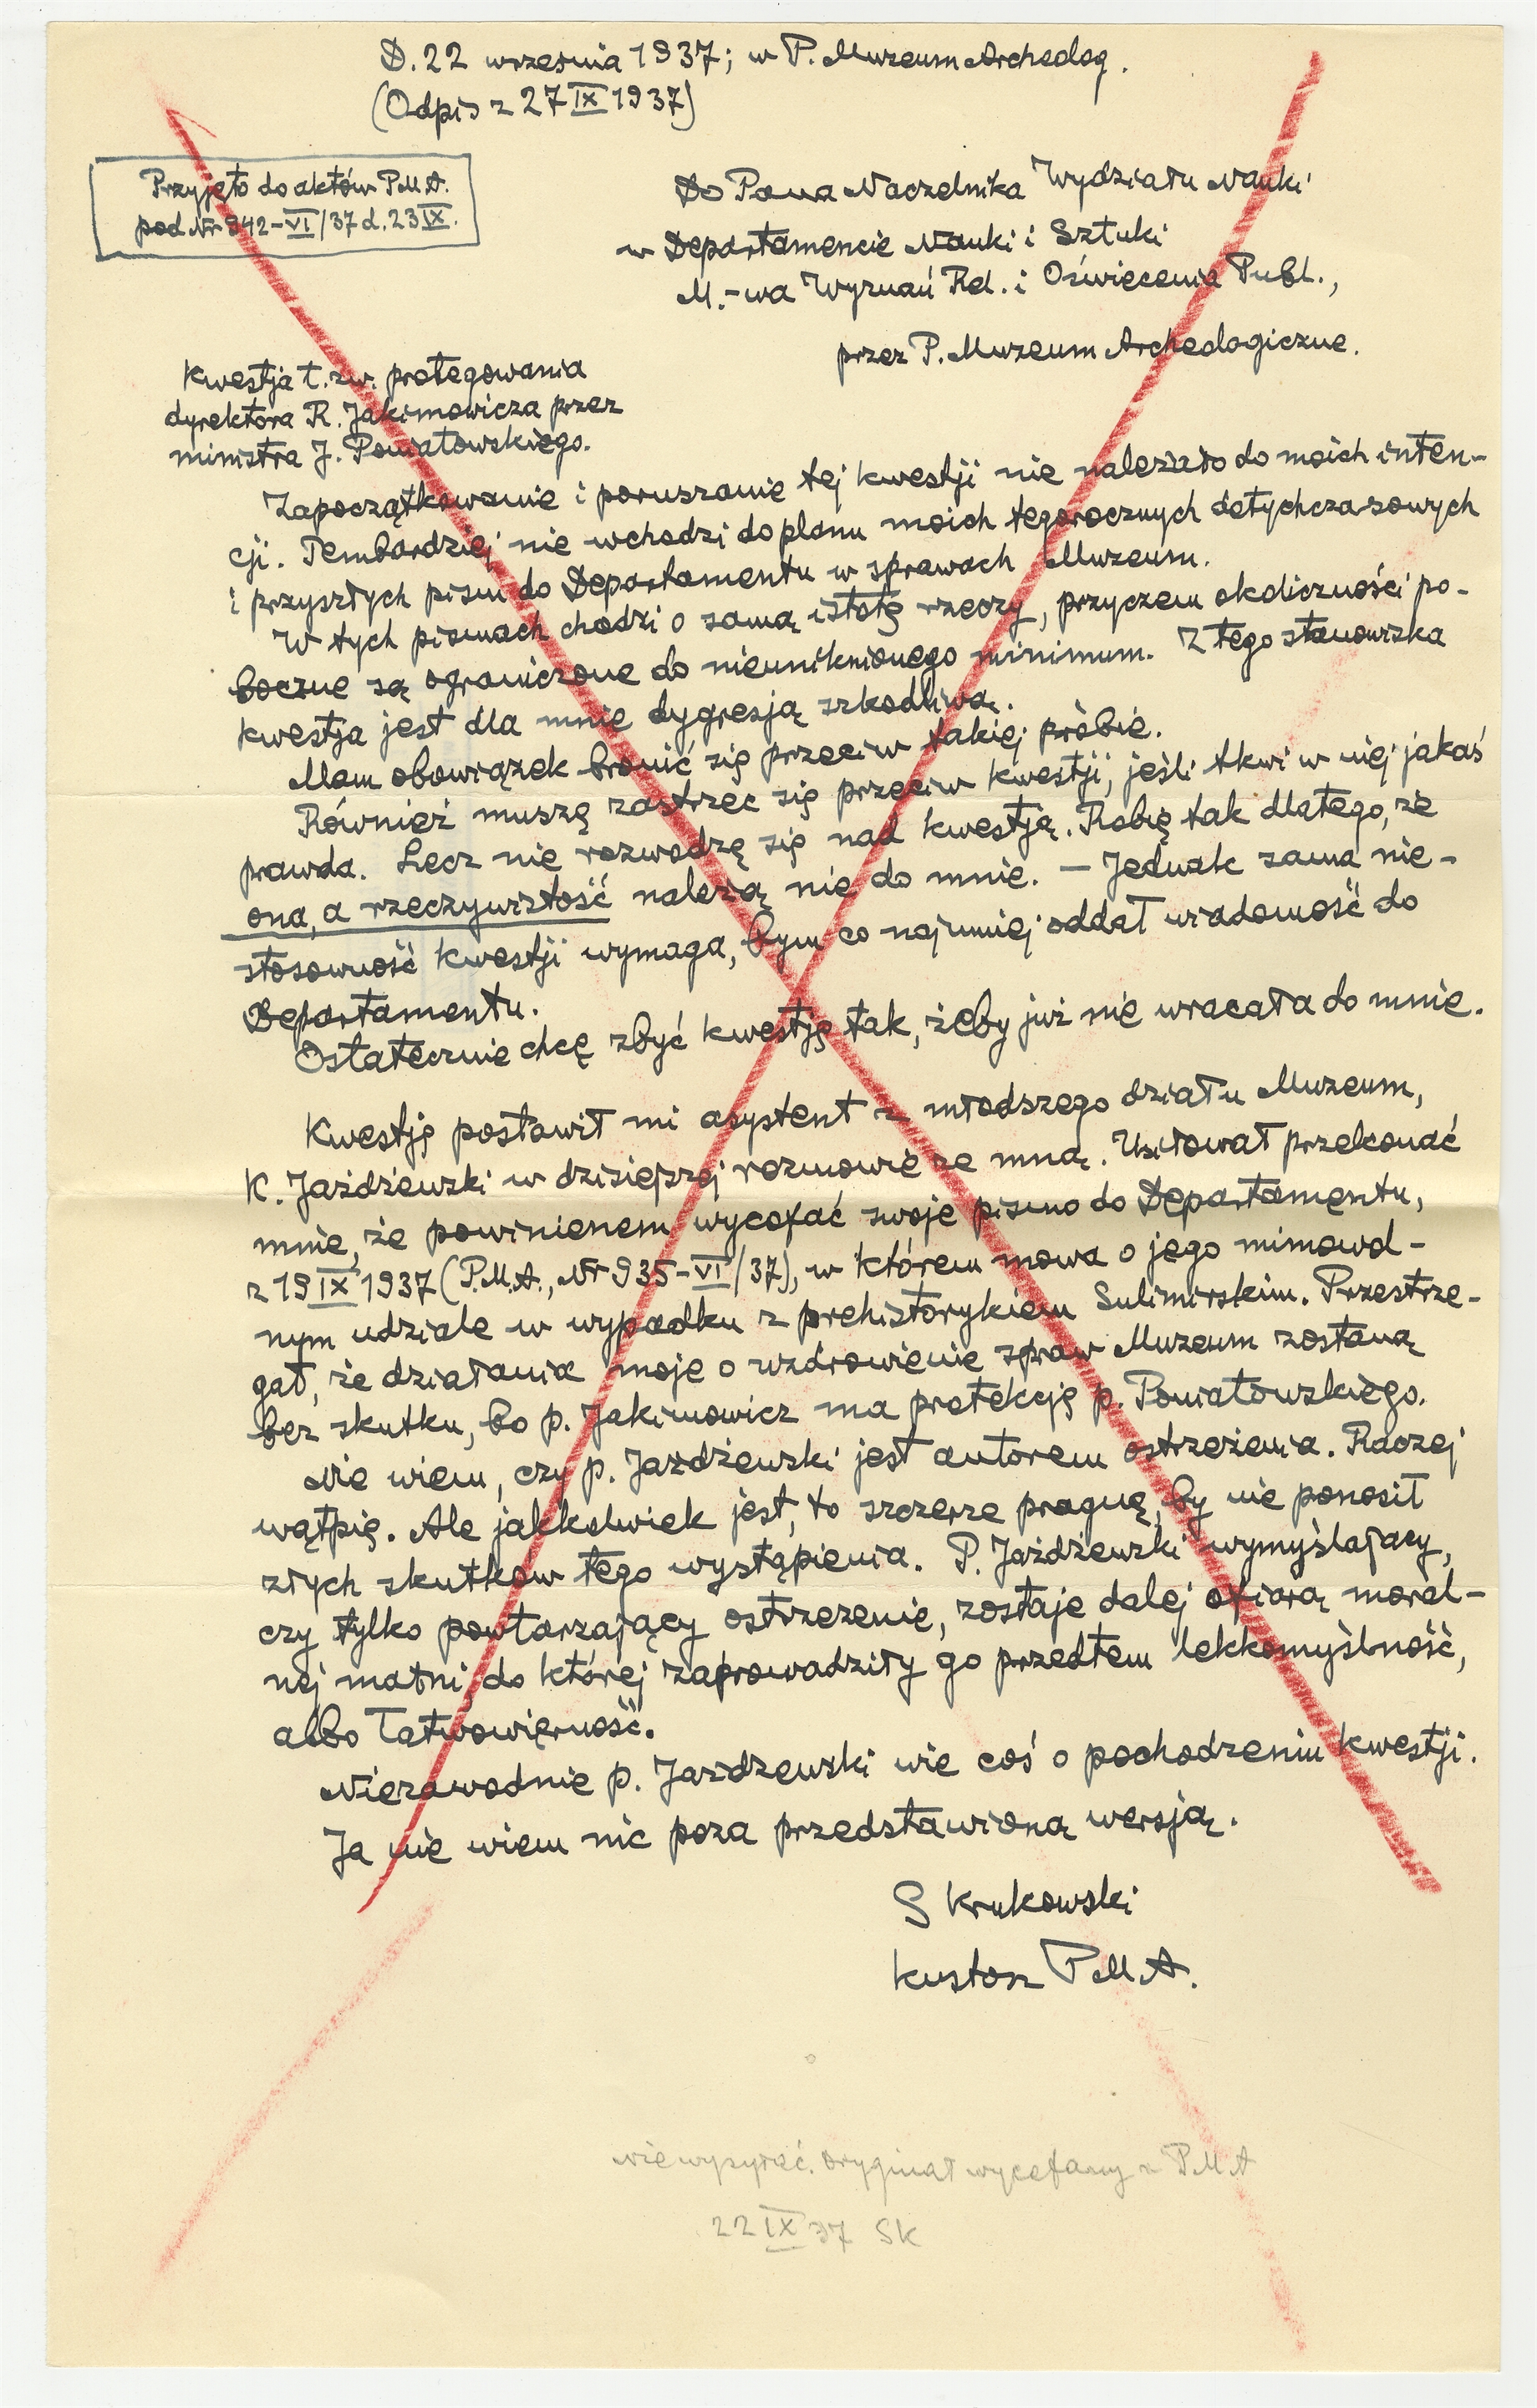 D. 22 września 1937; w P. Muzeum Archeolog.
(Odpis z 27 IX 1937)
Przyjęto do aktów P.M.A.
pod Nr 942-VI/37 d. 23 IX.
Do Pana Naczelnika Wydziału Nauki
w Departamencie Nauki i Sztuki
M.-wa Wyznań Rel. i Oświecenia Publ.,
przez P. Muzeum Archeologiczne.
Kwestja t. zw. protegowania
dyrektora R. Jakimowicza przez
ministra J. Poniatowskiego.
Zapoczątkowanie i poruszanie tej kwestji nie należało do moich inten-
cji. Tembardziej nie wchodzi do planu moich tegorocznych dotychczasowych
i przyszłych pism do Departamentu w sprawach Muzeum.
W tych pismach chodzi o samą istotę rzeczy, przyczem okoliczności po-
boczne są ograniczone do nieuniknionego minimum. Z tego stanowiska
kwestja jest dla mnie dygresją szkodliwą.
Mam obowiązek bronić się przeciw takiej próbie.
Również muszę zastrzec się przeciw kwestji, jeśli tkwi w niej jakaś
prawda. Lecz nie rozwodzę się nad kwestją. Robię tak dlatego, że
ona, a rzeczywistość należą nie do mnie. — Jednak sama nie-
stosowność kwestji wymaga, bym co najmniej oddał wiadomość do
Departamentu.
Ostatecznie chcę zbyć kwestję tak, żeby już nie wracała do mnie.
Kwestję postawił mi asystent z młodszego działu Muzeum,
K. Jażdżewski w dzisiejszej rozmowie ze mną. Usiłował przekonać
mnie, że powinienem wycofać swoje pismo do Departamentu,
z 19 IX 1937 (P.M.A., Nr 935-VI/37), w którem mowa o jego mimowol-
nym udziale w wypadku z prehistorykiem Sulimirskim. Przestrze-
gał, że działania moje o uzdrowienie spraw Muzeum zostaną
bez skutku, bo p. Jakimowicz ma protekcję p. Poniatowskiego.
Nie wiem, czy p. Jażdżewski jest autorem ostrzeżenia. Raczej
wątpię. Ale jakkolwiek jest, to szczerze pragnę, by nie ponosił
złych skutków tego wystąpienia. P. Jażdżewski wymyślający,
czy tylko powtarzający ostrzezenie, zostaje dalej ofiarą moral-
nej matni, do której zaprowadziły go przedtem lekkomyślność,
albo łatwowierność.
Niezawodnie p. Jażdżewski wie coś o pochodzeniu kwestji.
Ja nie wiem nic poza przedstawioną wersją.
S Krukowski
kustosz P.M.A.
nie wysyłać. oryginał wycofany z P.M.A
22 IX 37 SK